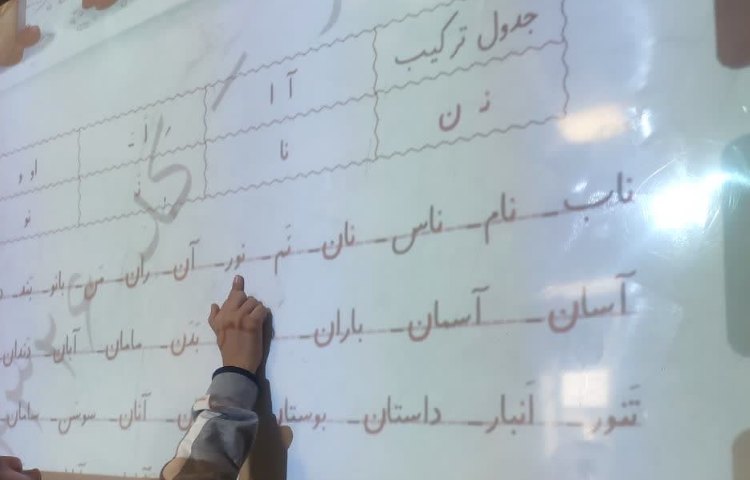 جدول ترکیب آ ا اَ ـَ او و
نـ ن نا نَـ نو
ناب ـ نام ـ ناس ـ نان ـ نَم ـ نور ـ آن ـ ران ـ مَن ـ بانو ـ بَند
آسان ـ آسمان ـ باران ـ بَدَن ـ مامان ـ آبان ـ دَندان
تَنور ـ اَنبار ـ داستان ـ بوستان ـ آنان ـ سوسَن ـ سامان